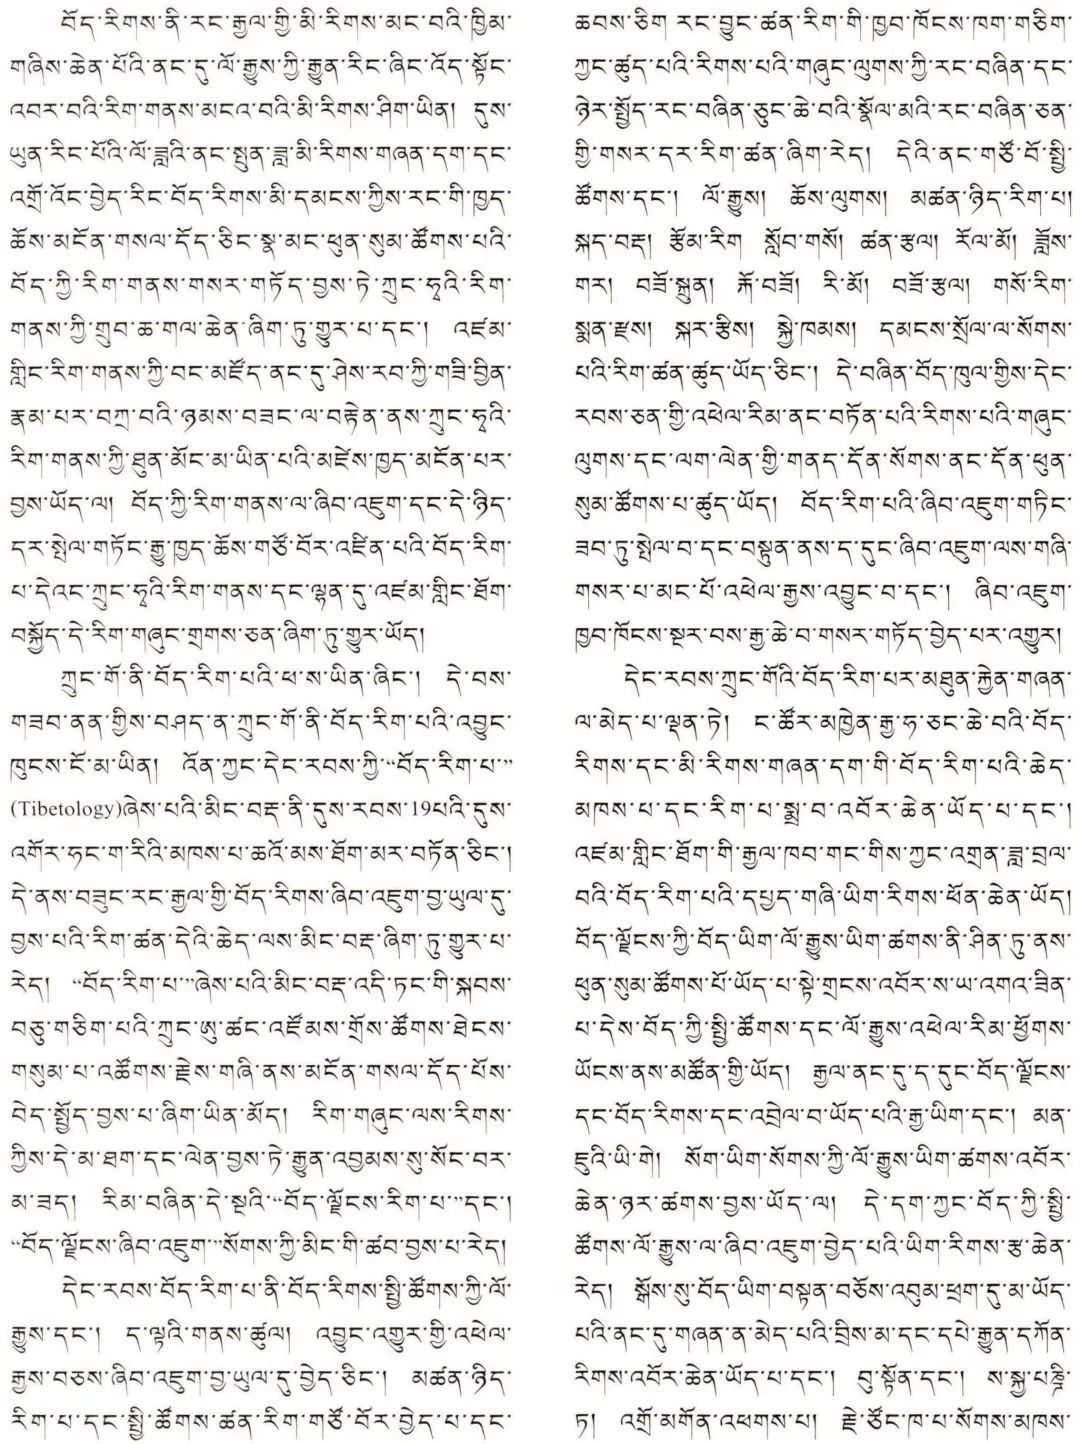 བོད་རིགས་ནི་རང་རྒྱལ་གྱི་མི་རིགས་མང་བའི་ཁྱིམ་
གཞིས་ཆེན་པོའི་ནང་དུ་ལོ་རྒྱུས་ཀྱི་རྒྱུན་རིང་ཞིང་འོད་སྟོང་
འབར་བའི་རིག་གནས་མངའ་བའི་མི་རིགས་ཤིག་ཡིན། དུས་
ཡུན་རིང་པོའི་ལོ་ཟླའི་ནང་སྤུན་ཟླ་མི་རིགས་གཞན་དག་དང་
འགྲོ་འོང་བྱེད་རིང་བོད་རིགས་མི་དམངས་ཀྱིས་རང་གི་ཁྱད་
ཆོས་མངོན་གསལ་དོད་ཅིང་སྣ་མང་ཕུན་སུམ་ཚོགས་པའི་
བོད་ཀྱི་རིག་གནས་གསར་གཏོད་བྱས་ཏེ་ཀྲུང་ཧྭའི་རིག་
གནས་ཀྱི་གྲུབ་ཆ་གལ་ཆེན་ཞིག་ཏུ་གྱུར་པ་དང་། འཛམ་
གླིང་རིག་གནས་ཀྱི་བང་མཛོད་ནང་དུ་ཤེས་རབ་ཀྱི་གཟི་བྱིན་
རྣམ་པར་བཀྲ་བའི་ཉམས་བཟང་ལ་བརྟེན་ནས་ཀྲུང་ཧྭའི་
རིག་གནས་ཀྱི་ཐུན་མོང་མ་ཡིན་པའི་མཛེས་ཁྱད་མངོན་པར་
བྱས་ཡོད་ལ། བོད་ཀྱི་རིག་གནས་ལ་ཞིབ་འཇུག་དང་དེ་ཉིད་
དར་སྤེལ་གཏོང་རྒྱུ་ཁྱད་ཆོས་གཙོ་བོར་འཛིན་པའི་བོད་རིག་
པ་དེའང་ཀྲུང་ཧྭའི་རིག་གནས་དང་ལྷན་དུ་འཛམ་གླིང་ཐོག་
བསྐྱོད་དེ་རིག་གཞུང་གྲགས་ཅན་ཞིག་ཏུ་གྱུར་ཡོད།
ཀྲུང་གོ་ནི་བོད་རིག་པའི་ཕ་ས་ཡིན་ཞིང་། དེ་བས་
གཟབ་ནན་གྱིས་བཤད་ན་ཀྲུང་གོ་ནི་བོད་རིག་པའི་འབྱུང་
ཁུངས་ངོ་མ་ཡིན། འོན་ཀྱང་དེང་རབས་ཀྱི་“བོད་རིག་པ་”
(Tibetology)ཞེས་པའི་མིང་བརྡ་ནི་དུས་རབས་19པའི་དུས་
འགོར་ཧང་ག་རིའི་མཁས་པ་ཆའོ་མས་ཐོག་མར་བཏོན་ཅིང་།
དེ་ནས་བཟུང་རང་རྒྱལ་གྱི་བོད་རིགས་ཞིབ་འཇུག་བྱ་ཡུལ་དུ་
བྱས་པའི་རིག་ཚན་དེའི་ཆེད་ལས་མིང་བརྡ་ཞིག་ཏུ་གྱུར་པ་
རེད། “བོད་རིག་པ་”ཞེས་པའི་མིང་བརྡ་འདི་ཏང་གི་སྐབས་
བཅུ་གཅིག་པའི་ཀྲུང་ཨུ་ཚང་འཛོམས་གྲོས་ཚོགས་ཐེངས་
གསུམ་པ་འཚོགས་རྗེས་གཞི་ནས་མངོན་གསལ་དོད་པོས་
བེད་སྤྱོད་བྱས་པ་ཞིག་ཡིན་མོད། རིག་གཞུང་ལས་རིགས་
ཀྱིས་དེ་མ་ཐག་དང་ལེན་བྱས་ཏེ་རྒྱུན་འབྱམས་སུ་སོང་བར་
མ་ཟད། རིམ་བཞིན་དེ་སྔའི་“བོད་ལྗོངས་རིག་པ་”དང་།
“བོད་ལྗོངས་ཞིབ་འཇུག་”སོགས་ཀྱི་མིང་གི་ཚབ་བྱས་པ་རེད།
དེང་རབས་བོད་རིག་པ་ནི་བོད་རིགས་སྤྱི་ཚོགས་ཀྱི་ལོ་
རྒྱུས་དང་། ད་ལྟའི་གནས་ཚུལ། འབྱུང་འགྱུར་གྱི་འཕེལ་
རྒྱས་བཅས་ཞིབ་འཇུག་བྱ་ཡུལ་དུ་བྱེད་ཅིང་། མཚན་ཉིད་
རིག་པ་དང་སྤྱི་ཚོགས་ཚན་རིག་གཙོ་བོར་བྱེད་པ་དང་
ཆབས་ཅིག རང་བྱུང་ཚན་རིག་གི་ཁྱབ་ཁོངས་ཁག་གཅིག་
ཀྱང་ཚུད་པའི་རིགས་པའི་གཞུང་ལུགས་ཀྱི་རང་བཞིན་དང་
ཉེར་སྤྱོད་རང་བཞིན་ཅུང་ཆེ་བའི་སྣོལ་མའི་རང་བཞིན་ཅན་
གྱི་གསར་དར་རིག་ཚན་ཞིག་རེད། དེའི་ནང་གཙོ་བོ་སྤྱི་
ཚོགས་དང་། ལོ་རྒྱུས། ཆོས་ལུགས། མཚན་ཉིད་རིག་པ།
སྐད་བརྡ། རྩོམ་རིག སློབ་གསོ། ཚན་རྩལ། རོལ་མོ། ཟློས་
གར། བཟོ་སྐྲུན། རྐོ་བཟོ། རི་མོ། བཟོ་རྩལ། གསོ་རིག་
སྨན་རྫས། སྐར་རྩིས། སྐྱེ་ཁམས། དམངས་སྲོལ་ལ་སོགས་
པའི་རིག་ཚན་ཚུད་ཡོད་ཅིང་། དེ་བཞིན་བོད་ཁུལ་གྱིས་དེང་
རབས་ཅན་གྱི་འཕེལ་རིམ་ནང་བཏོན་པའི་རིགས་པའི་གཞུང་
ལུགས་དང་ལག་ལེན་གྱི་གནད་དོན་སོགས་ནང་དོན་ཕུན་
སུམ་ཚོགས་པ་ཚུད་ཡོད། བོད་རིག་པའི་ཞིབ་འཇུག་གཏིང་
ཟབ་ཏུ་སྤེལ་བ་དང་བསྟུན་ནས་ད་དུང་ཞིབ་འཇུག་ལས་གཞི་
གསར་པ་མང་པོ་འཕེལ་རྒྱས་འབྱུང་བ་དང་། ཞིབ་འཇུག་
ཁྱབ་ཁོངས་སྔར་བས་རྒྱ་ཆེ་བ་གསར་གཏོད་བྱེད་པར་འགྱུར།
དེང་རབས་ཀྲུང་གོའི་བོད་རིག་པར་མཐུན་རྐྱེན་གཞན་
ལ་མེད་པ་ལྡན་ཏེ། ང་ཚོར་མཁྱེན་རྒྱ་ཧ་ཅང་ཆེ་བའི་བོད་
རིགས་དང་མི་རིགས་གཞན་དག་གི་བོད་རིག་པའི་ཆེད་
མཁས་པ་དང་རིག་པ་སྨྲ་བ་འབོར་ཆེན་ཡོད་པ་དང་།
འཛམ་གླིང་ཐོག་གི་རྒྱལ་ཁབ་གང་གིས་ཀྱང་འགྲན་ཟླ་བྲལ་
བའི་བོད་རིག་པའི་དཔྱད་གཞི་ཡིག་རིགས་ཕོན་ཆེན་ཡོད།
བོད་ལྗོངས་ཀྱི་བོད་ཡིག་ལོ་རྒྱུས་ཡིག་ཚགས་ནི་ཤིན་ཏུ་ནས་
ཕུན་སུམ་ཚོགས་པོ་ཡོད་པ་སྟེ་གྲངས་འབོར་ས་ཡ་འགའ་ཟིན་
པ་དེས་བོད་ཀྱི་སྤྱི་ཚོགས་དང་ལོ་རྒྱུས་འཕེལ་རིམ་ཕྱོགས་
ཡོངས་ནས་མཚོན་གྱི་ཡོད། རྒྱལ་ནང་དུ་ད་དུང་བོད་ལྗོངས་
དང་བོད་རིགས་དང་འབྲེལ་བ་ཡོད་པའི་རྒྱ་ཡིག་དང་། མན་
ཇུའི་ཡི་གེ། སོག་ཡིག་སོགས་ཀྱི་ལོ་རྒྱུས་ཡིག་ཚགས་འབོར་
ཆེན་ཉར་ཚགས་བྱས་ཡོད་ལ། དེ་དག་ཀྱང་བོད་ཀྱི་སྤྱི་
ཚོགས་ལོ་རྒྱུས་ལ་ཞིབ་འཇུག་བྱེད་པའི་ཡིག་རིགས་རྩ་ཆེན་
རེད། སྒོས་སུ་བོད་ཡིག་བསྟན་བཅོས་འབུམ་ཕྲག་དུ་མ་ཡོད་
པའི་ནང་དུ་གཞན་ན་མེད་པའི་བྲིས་མ་དང་དཔེ་རྒྱུན་དཀོན་
རིགས་འབོར་ཆེན་ཡོད་པ་དང་། བུ་སྟོན་དང་། ས་སྐྱ་པཎྜི་
ཏ། འགྲོ་མགོན་འཕགས་པ། རྗེ་ཙོང་ཁ་པ་སོགས་མཁས་